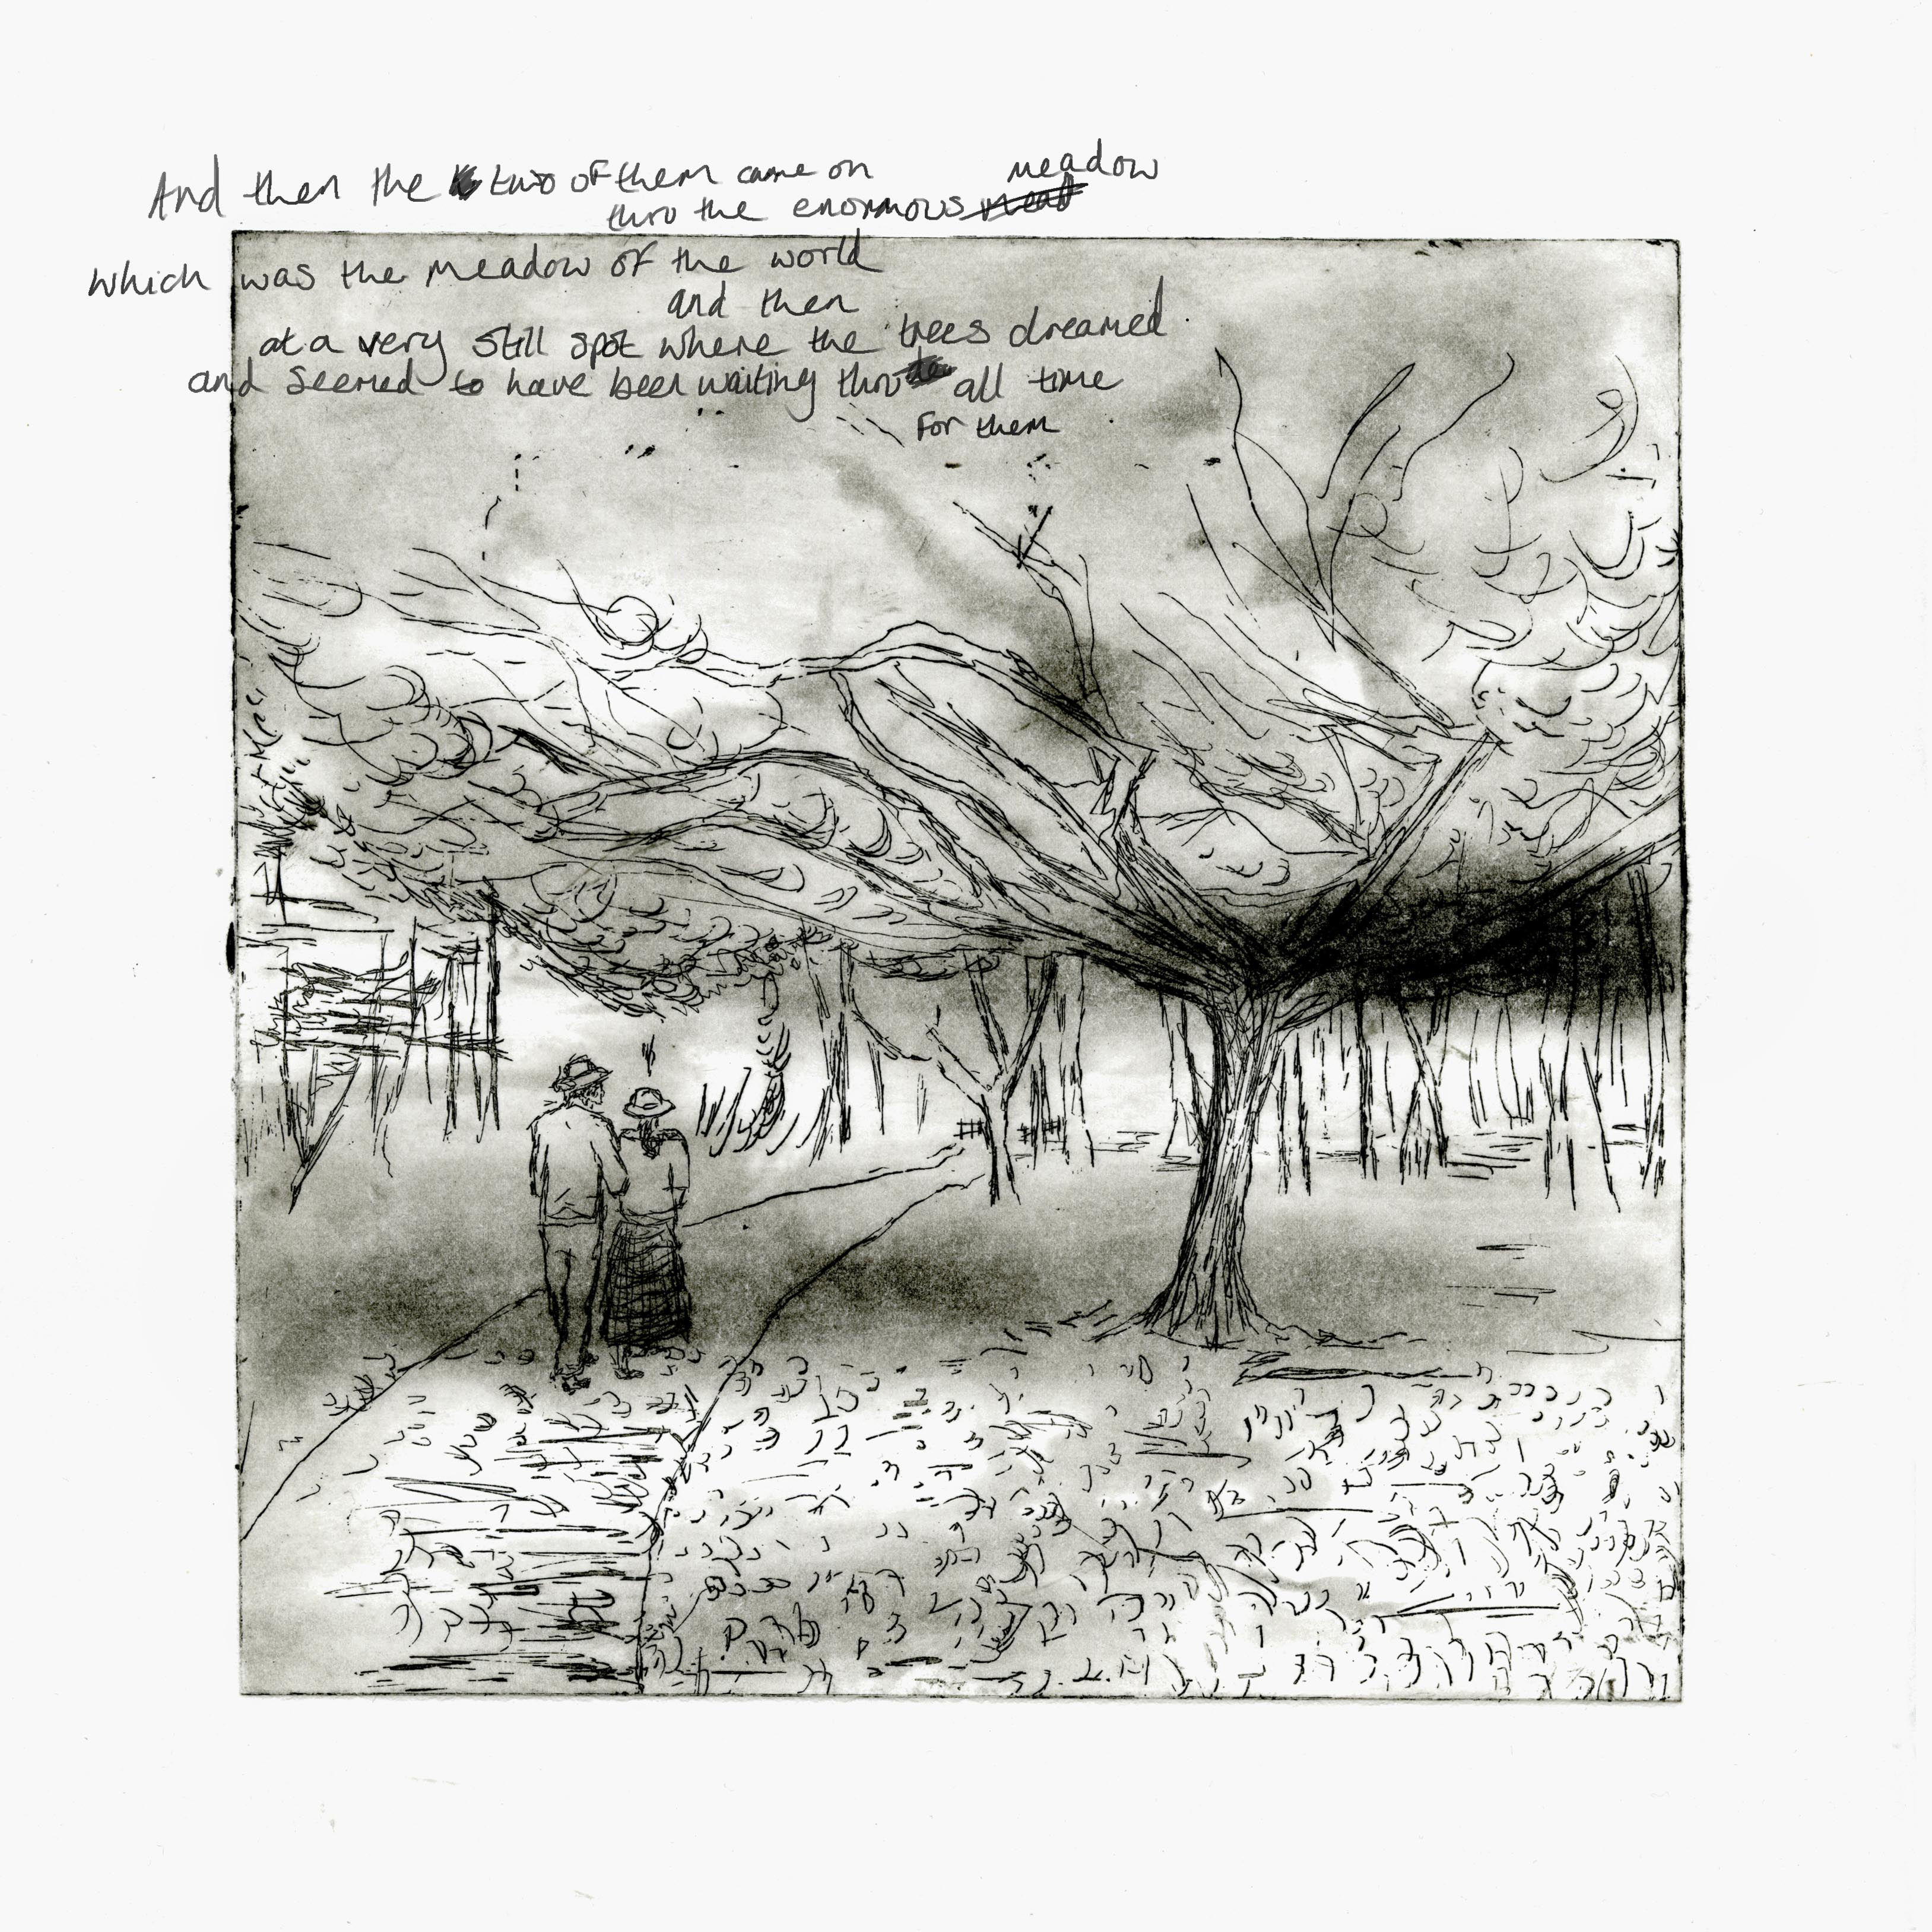 And then the two of them came on
thru the enormous meadow
which was the meadow of the world
and then
at a very still spot where the trees dreamed
and seemed to have been waiting thru all time
For them